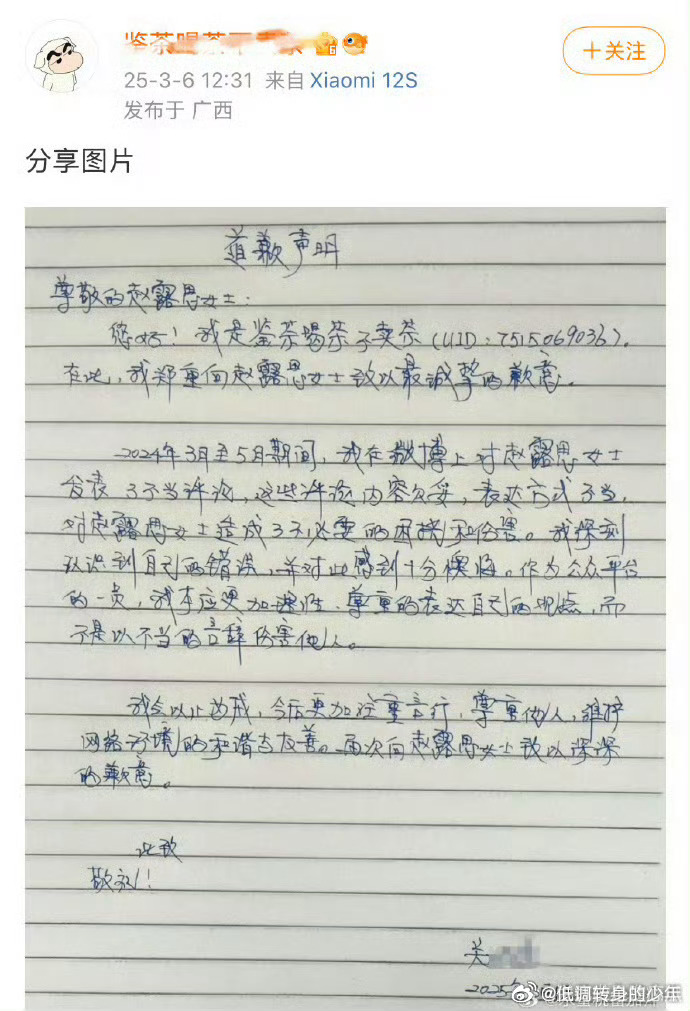 鉴茶喝茶不卖茶
+关注
25-3-6 12:31 来自 Xiaomi 12S
发布于 广西
分享图片
道歉声明
尊敬的赵露思女士:
您好!我是鉴茶喝茶不卖茶(UID:7515069036)。
在此,我郑重向赵露思女士致以最诚挚的歉意。
2024年3月至5月期间,我在微博上对赵露思女士
发表了不当评论,这些评论内容欠妥,表达方式不当,
对赵露思女士造成了不必要的困扰和伤害。我深刻
认识到自己的错误,并对此感到十分懊悔。作为公众平台
的一员,我本应更加理性、尊重的表达自己的观点,而
不是以不当的言辞伤害他人。
我会以此为戒,今后更加注重言行,尊重他人,维护
网络环境的和谐与友善。再次向赵露思女士致以深深
的歉意。
此致
敬礼!
关
2025年
@低调转身的少年